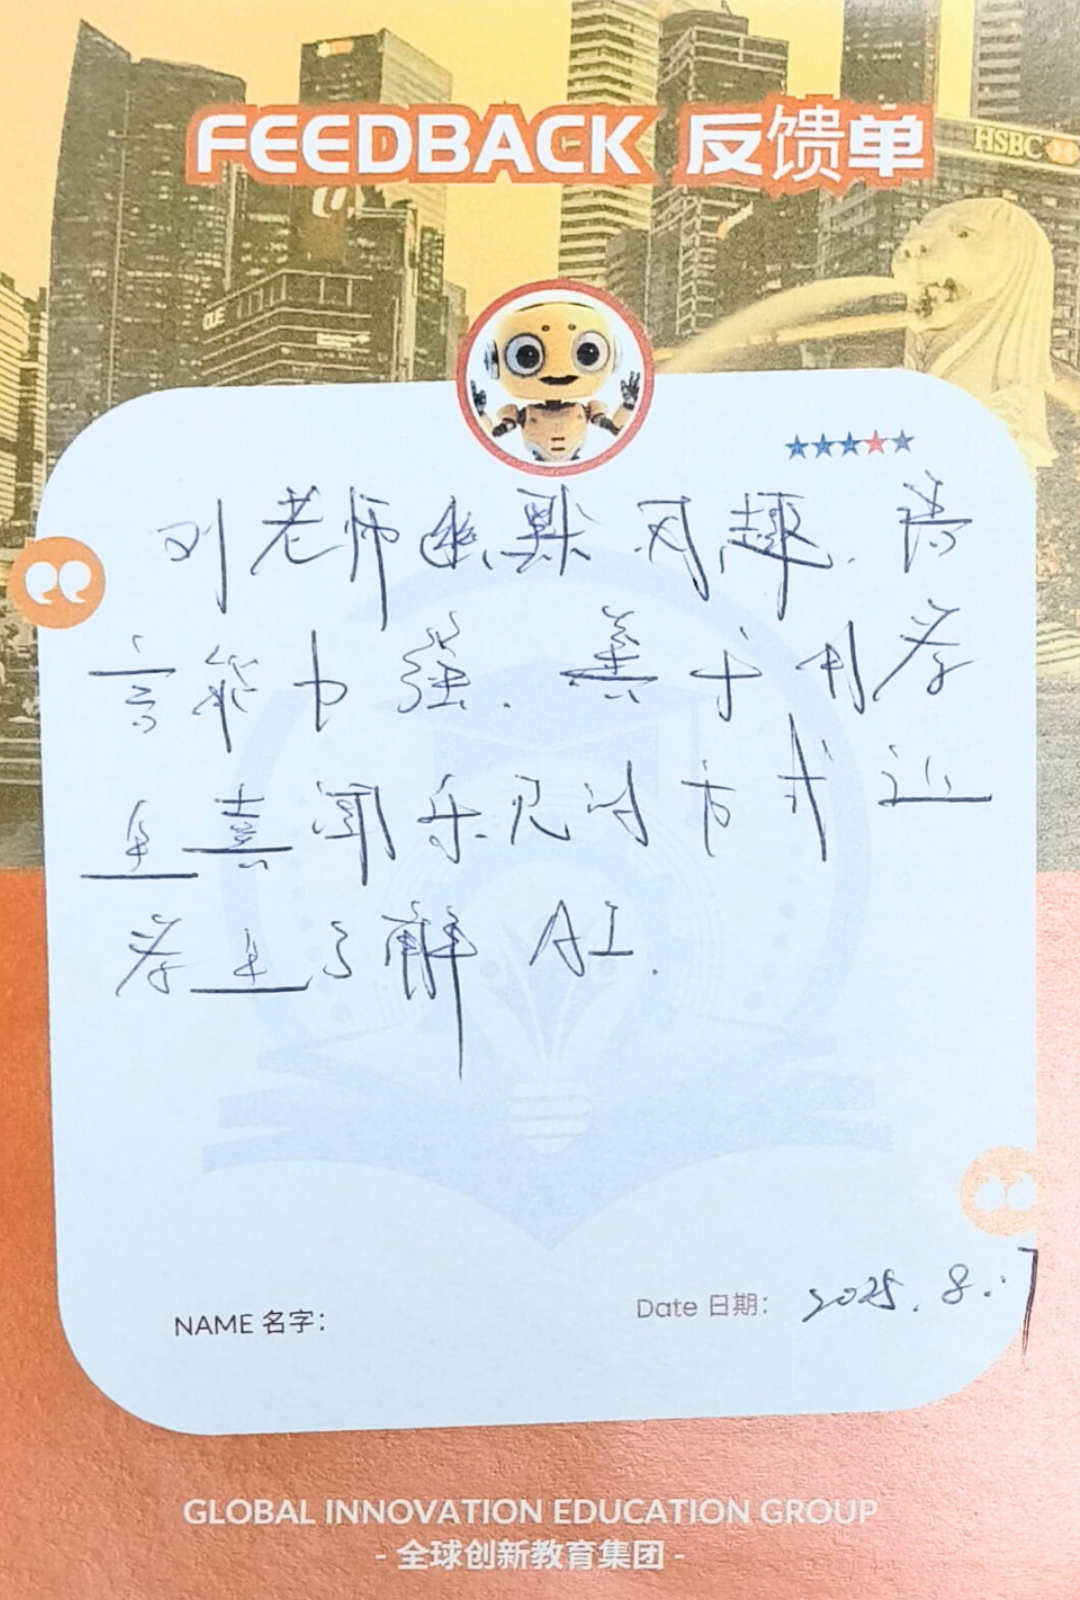 FEEDBACK 反馈单
HSBC
OUE
刘老师幽默风趣.语
言能力强.善于用学
生喜闻乐见的方式让
学生了解AI.
NAME 名字:
Date 日期: 2025.8.7
GLOBAL INNOVATION EDUCATION GROUP
- 全球创新教育集团 -